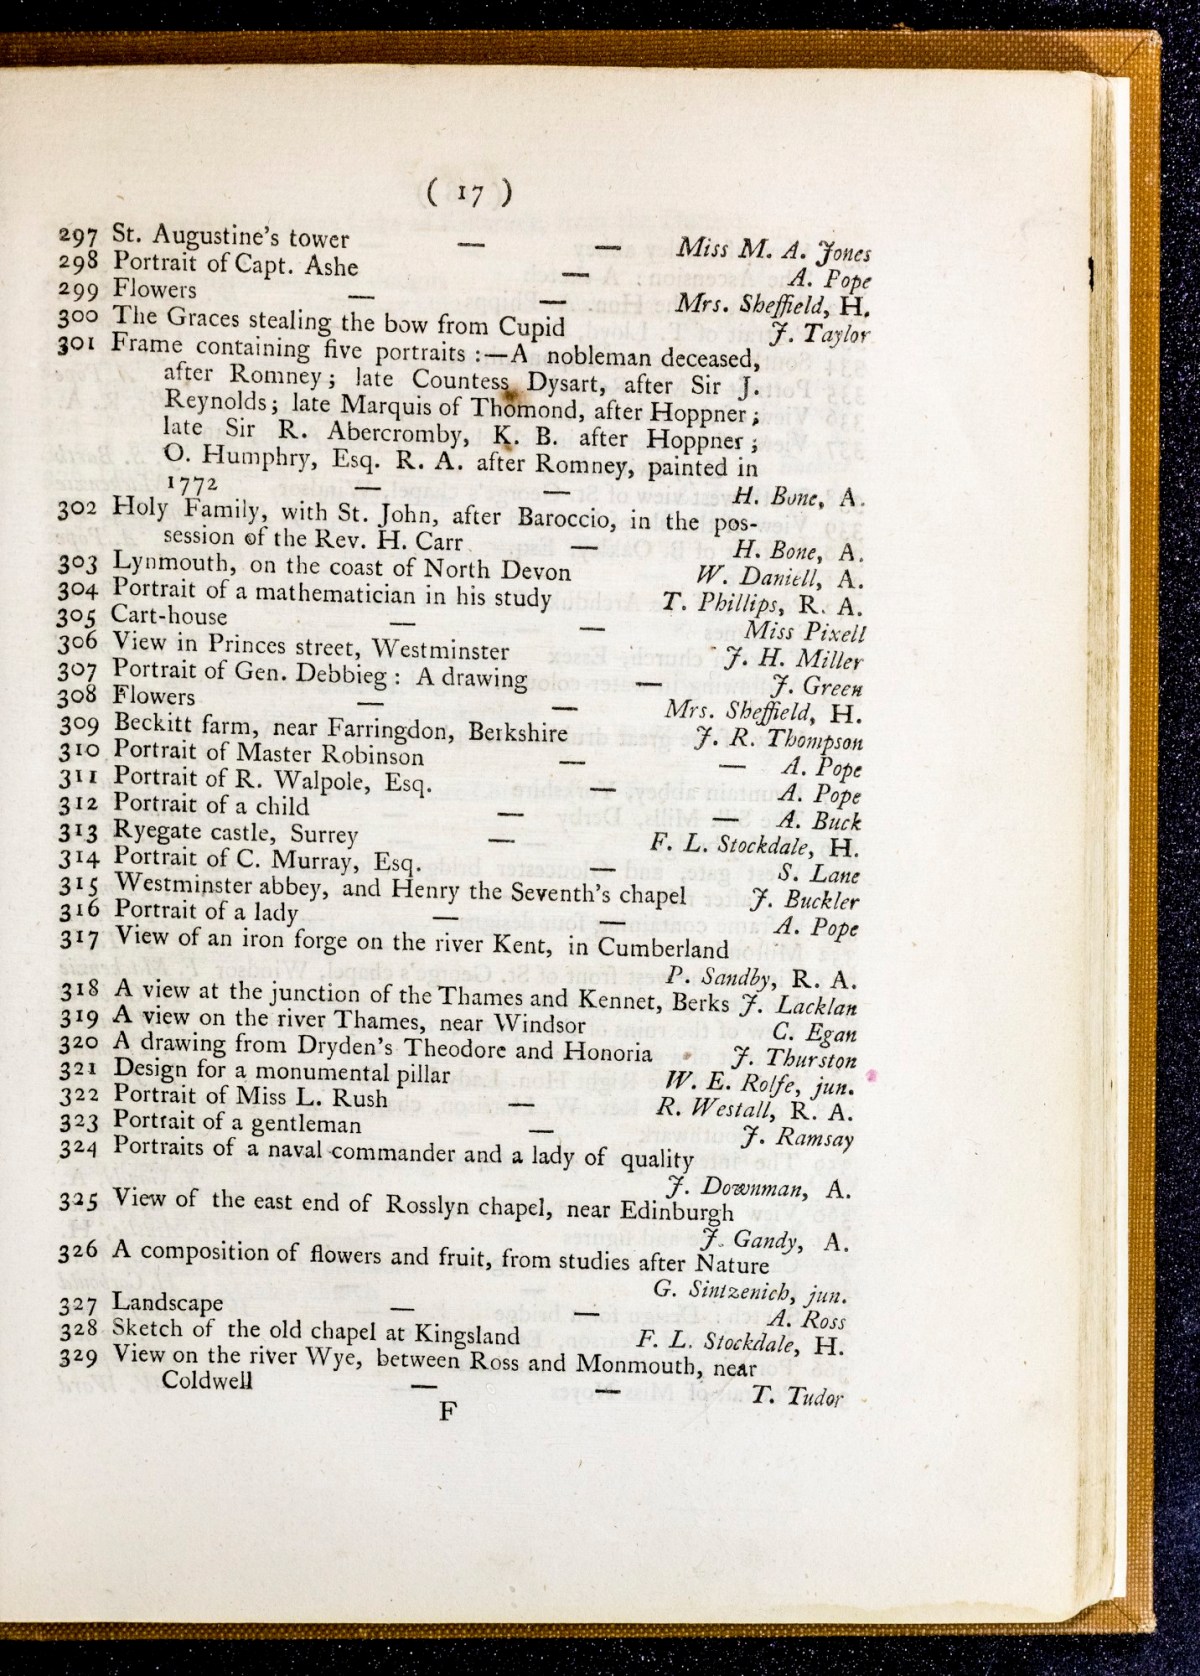 ( 17 )
297 St. Augustine's tower — — Miss M. A. Jones
298 Portrait of Capt. Ashe — A. Pope
299 Flowers — — Mrs. Sheffield, H.
300 The Graces stealing the bow from Cupid J. Taylor
301 Frame containing five portraits :—A nobleman deceased,
after Romney; late Countess Dysart, after Sir J.
Reynolds; late Marquis of Thomond, after Hoppner;
late Sir R. Abercromby, K. B. after Hoppner;
O. Humphry, Esq. R. A. after Romney, painted in
1772 — — H. Bone, A.
302 Holy Family, with St. John, after Baroccio, in the pos-
session of the Rev. H. Carr — H. Bone, A.
303 Lynmouth, on the coast of North Devon W. Daniell, A.
304 Portrait of a mathematician in his study T. Phillips, R. A.
305 Cart-house — — Miss Pixell
306 View in Princes street, Westminster J. H. Miller
307 Portrait of Gen. Debbieg : A drawing — J. Green
308 Flowers — — Mrs. Sheffield, H.
309 Beckitt farm, near Farringdon, Berkshire J. R. Thompson
310 Portrait of Master Robinson — — A. Pope
311 Portrait of R. Walpole, Esq. — A. Pope
312 Portrait of a child — — A. Buck
313 Ryegate castle, Surrey — F. L. Stockdale, H.
314 Portrait of C. Murray, Esq. — S. Lane
315 Westminster abbey, and Henry the Seventh's chapel J. Buckler
316 Portrait of a lady — — A. Pope
317 View of an iron forge on the river Kent, in Cumberland
P. Sandby, R. A.
318 A view at the junction of the Thames and Kennet, Berks J. Lacklan
319 A view on the river Thames, near Windsor C. Egan
320 A drawing from Dryden's Theodore and Honoria J. Thurston
321 Design for a monumental pillar W. E. Rolfe, jun.
322 Portrait of Miss L. Rush — R. Westall, R. A.
323 Portrait of a gentleman — J. Ramsay
324 Portraits of a naval commander and a lady of quality
J. Downman, A.
325 View of the east end of Rosslyn chapel, near Edinburgh
J. Gandy, A.
326 A composition of flowers and fruit, from studies after Nature
G. Sintzenich, jun.
327 Landscape — — A. Ross
328 Sketch of the old chapel at Kingsland F. L. Stockdale, H.
329 View on the river Wye, between Ross and Monmouth, near
Coldwell — — T. Tudor
F